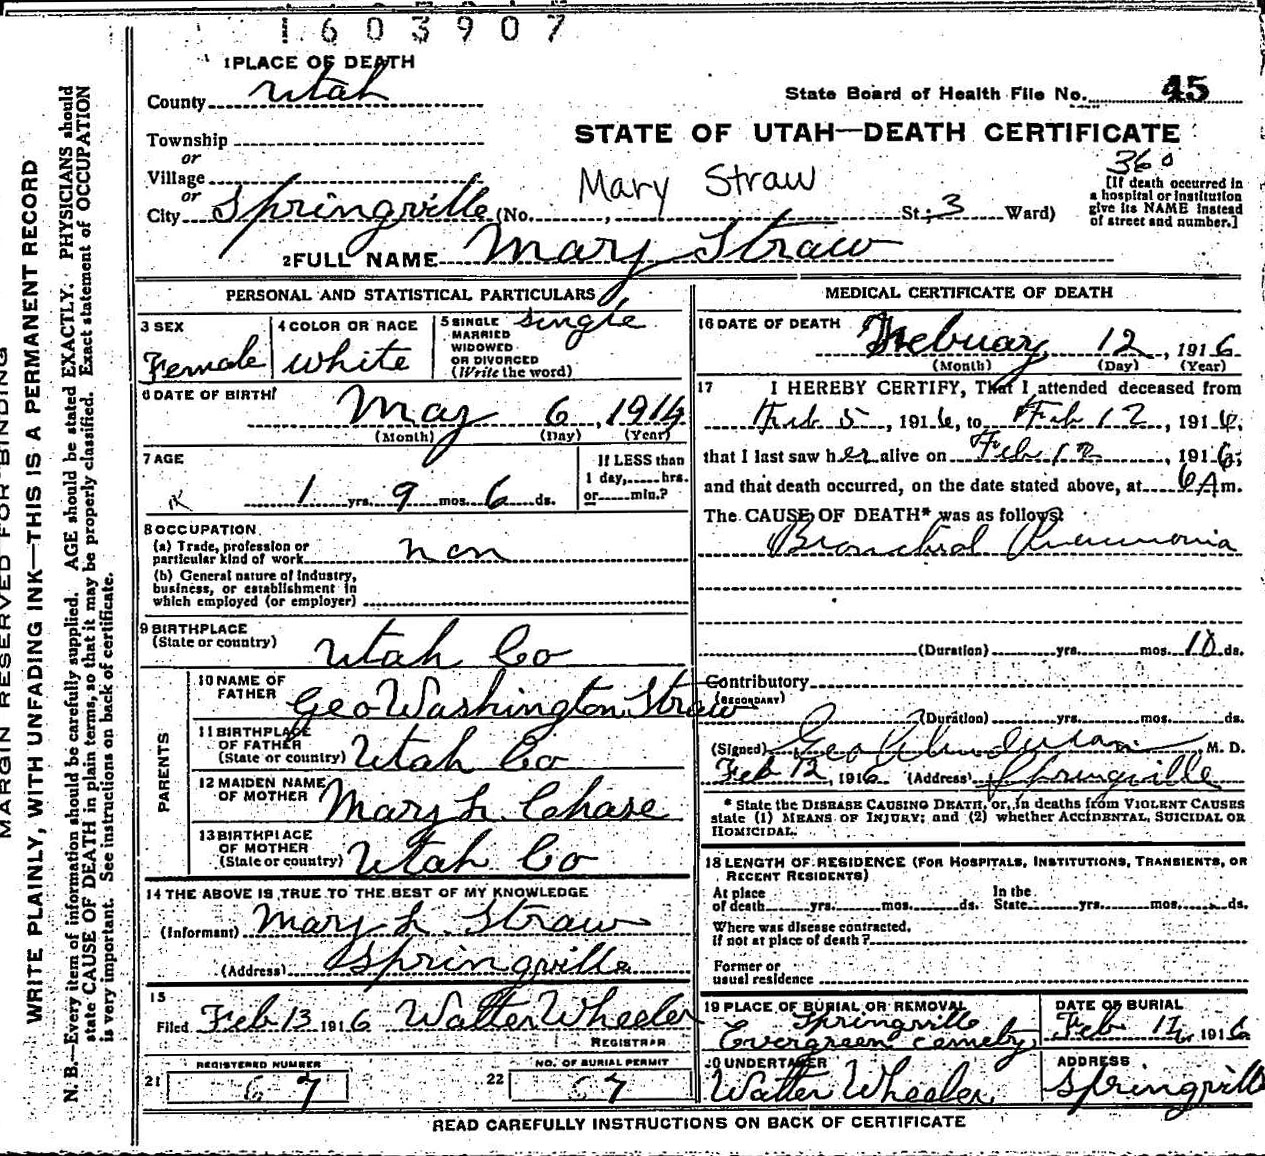 1603907
1 PLACE OF DEATH
County Utah
State Board of Health File No. 45
Township
or
Village
or
City Springville (No. , St; 3 Ward)
STATE OF UTAH—DEATH CERTIFICATE
360
Mary Straw
[If death occurred in
a hospital or institution
give its NAME instead
of street and number.]
2 FULL NAME Mary Straw
PERSONAL AND STATISTICAL PARTICULARS
3 SEX
Female
4 COLOR OR RACE
White
5 SINGLE
MARRIED
WIDOWED
OR DIVORCED
(Write the word)
Single
6 DATE OF BIRTH
May 6, 1914
(Month) (Day) (Year)
7 AGE
1 yrs. 9 mos. 6 ds.
If LESS than
1 day, hrs.
or min.?
8 OCCUPATION
(a) Trade, profession or
particular kind of work non
(b) General nature of industry,
business, or establishment in
which employed (or employer)
9 BIRTHPLACE
(State or country)
Utah Co
PARENTS
10 NAME OF
FATHER
Geo Washington Straw
11 BIRTHPLACE
OF FATHER
(State or country)
Utah Co
12 MAIDEN NAME
OF MOTHER
Mary L. Chase
13 BIRTHPLACE
OF MOTHER
(State or country)
Utah Co
14 THE ABOVE IS TRUE TO THE BEST OF MY KNOWLEDGE
(Informant) Mary L. Straw
(Address) Springville
15
Filed Feb 13 1916 Walter Wheeler
REGISTRAR
REGISTERED NUMBER
21 67
NO. OF BURIAL PERMIT
22 67
MEDICAL CERTIFICATE OF DEATH
16 DATE OF DEATH
Febuary 12, 1916
(Month) (Day) (Year)
17 I HEREBY CERTIFY, That I attended deceased from
Feb 5, 1916, to Feb 12, 1916,
that I last saw her alive on Feb 12, 1916,
and that death occurred, on the date stated above, at 6 A m.
The CAUSE OF DEATH* was as follows:
Bronchial Pneumonia
(Duration) yrs. mos. 10 ds.
Contributory
(SECONDARY)
(Duration) yrs. mos. ds.
(Signed) Geo , M. D.
Feb 12, 1916 (Address) Springville
* State the DISEASE CAUSING DEATH, or, in deaths from VIOLENT CAUSES
state (1) MEANS OF INJURY; and (2) whether ACCIDENTAL, SUICIDAL OR
HOMICIDAL.
18 LENGTH OF RESIDENCE (FOR HOSPITALS, INSTITUTIONS, TRANSIENTS, OR
RECENT RESIDENTS)
At place
of death yrs. mos. ds.
In the
State yrs. mos. ds.
Where was disease contracted,
if not at place of death?
Former or
usual residence
19 PLACE OF BURIAL OR REMOVAL
Springville
Evergreen Cemetry
DATE OF BURIAL
Feb 1916
20 UNDERTAKER
Walter Wheeler
ADDRESS
Springville
READ CAREFULLY INSTRUCTIONS ON BACK OF CERTIFICATE
MARGIN RESERVED FOR BINDING
WRITE PLAINLY, WITH UNFADING INK—THIS IS A PERMANENT RECORD
N. B.—Every item of information should be carefully supplied. AGE should be stated EXACTLY. PHYSICIANS should
state CAUSE OF DEATH in plain terms, so that it may be properly classified. Exact statement of OCCUPATION
is very important. See instructions on back of certificate.